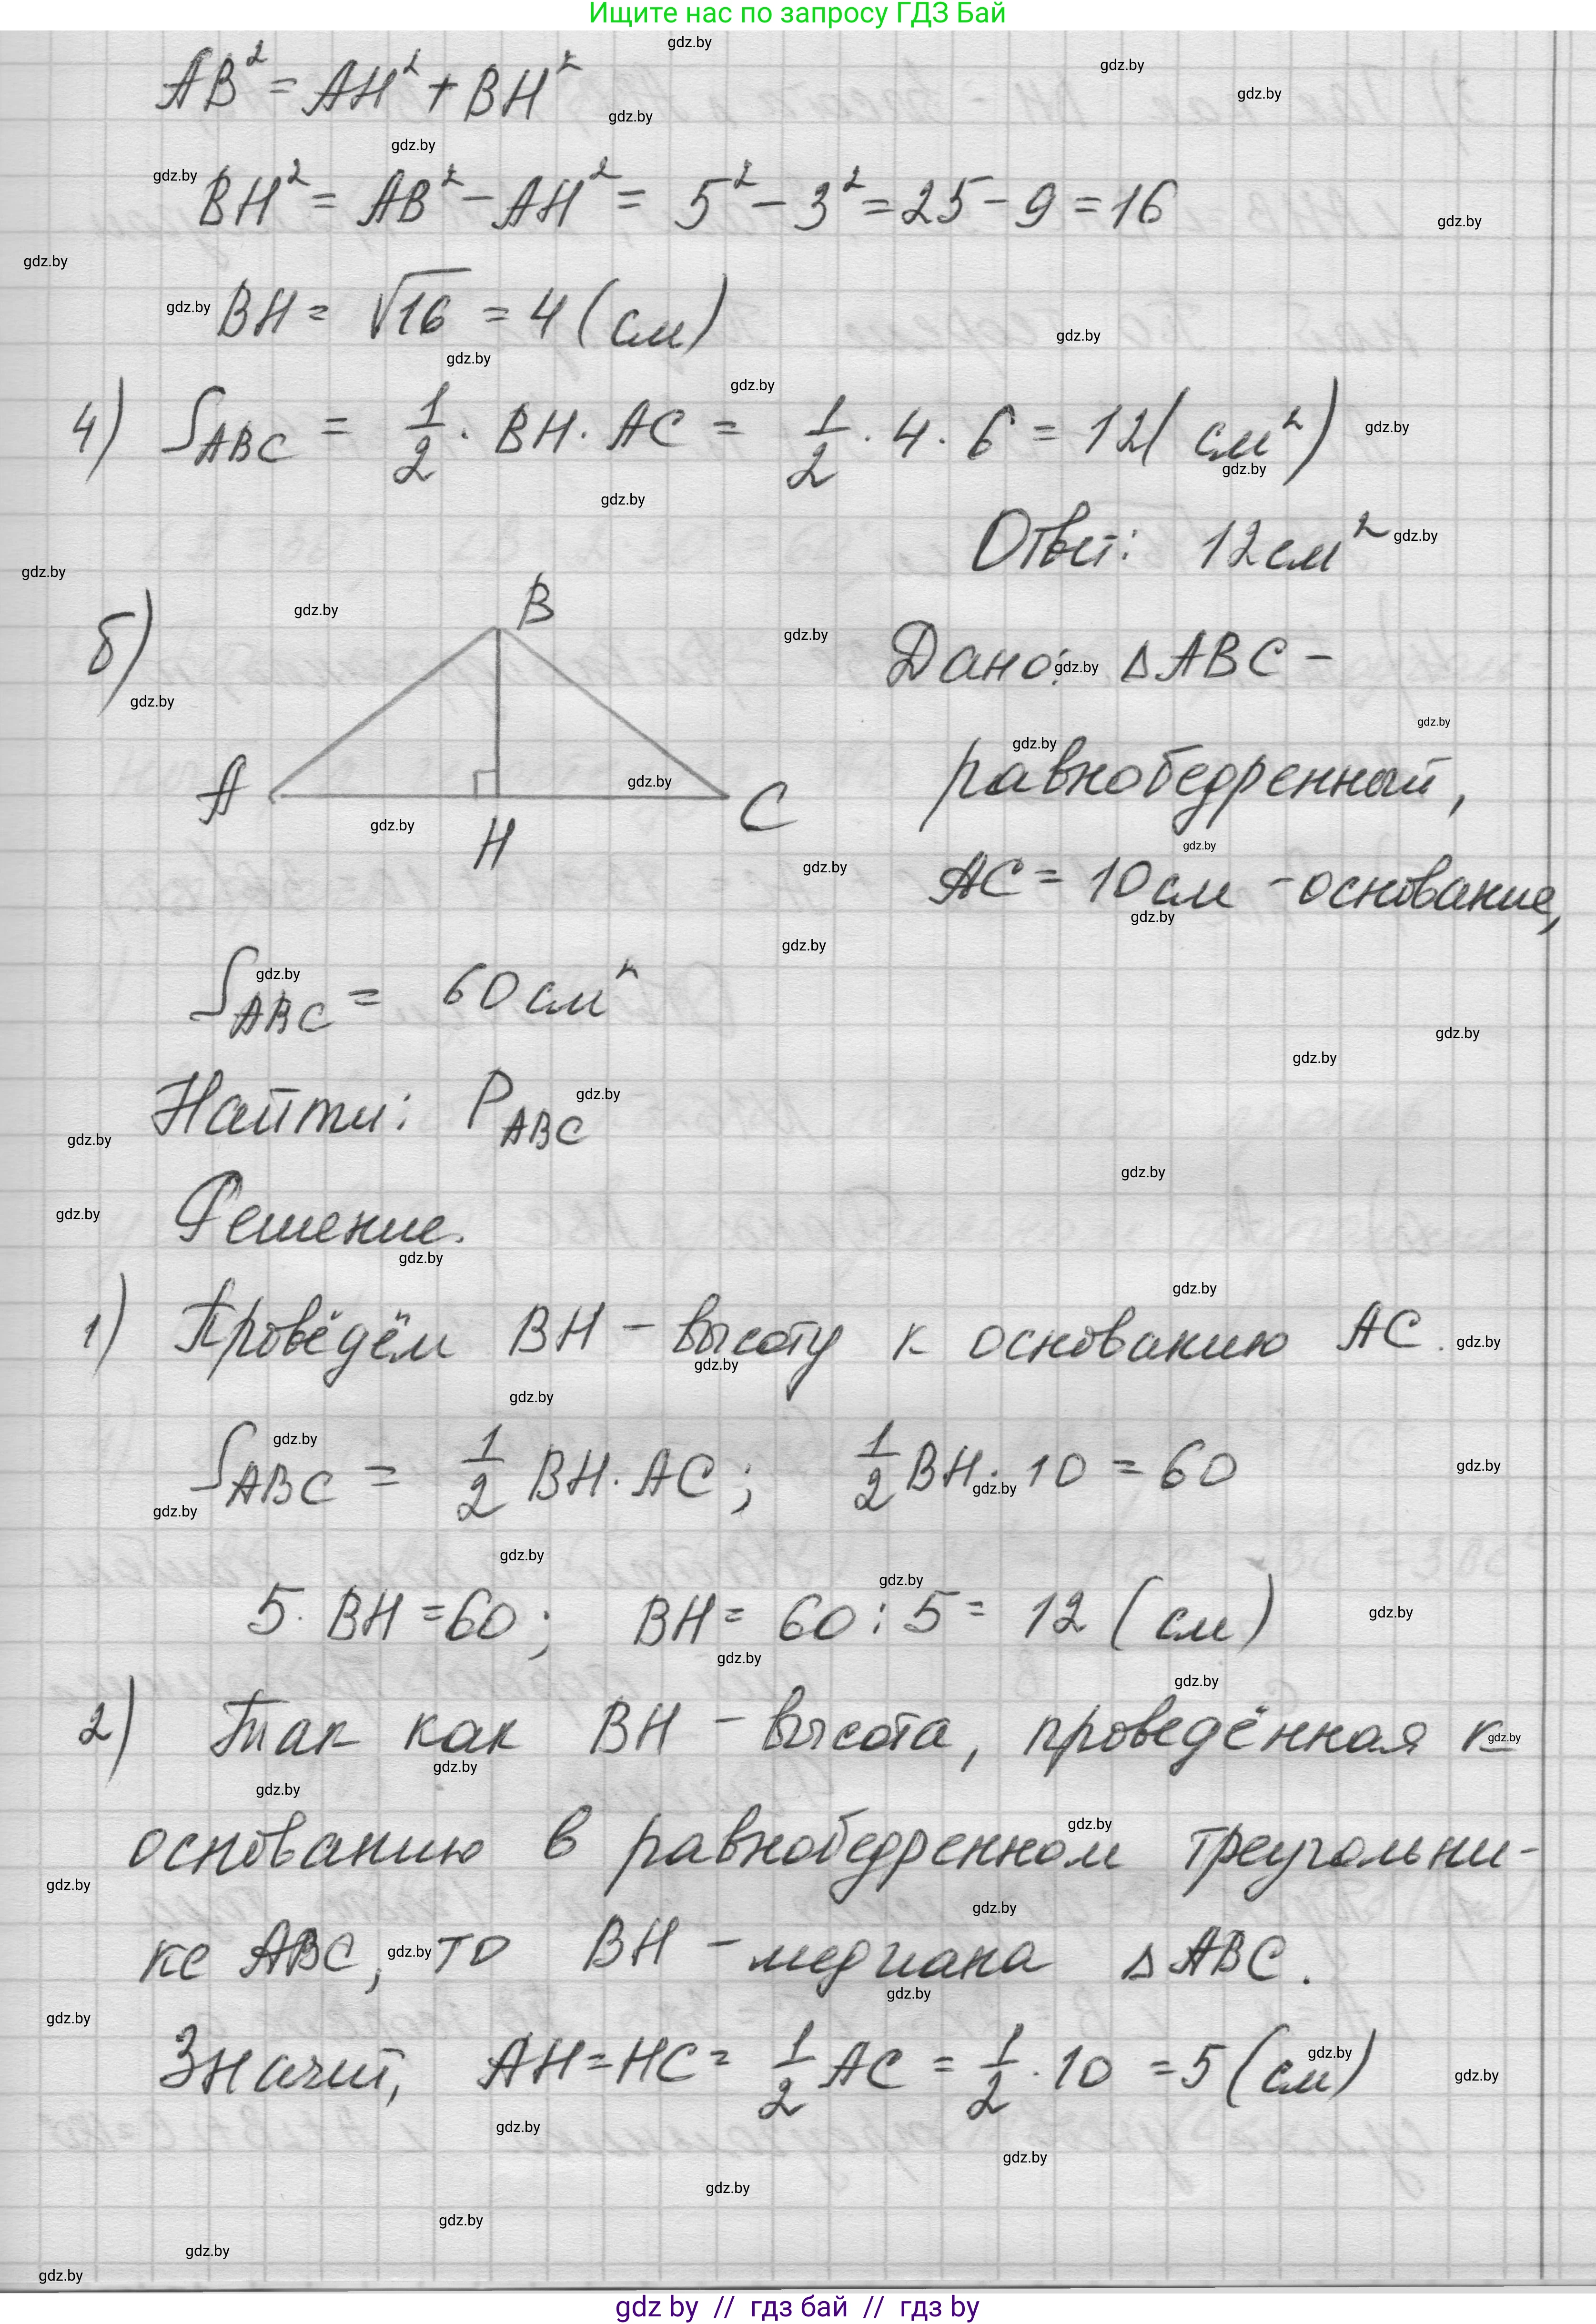 Ищите нас по запросу ГДЗ Бай
AB² = AH² + BH²
BH² = AB² - AH² = 5² - 3² = 25 - 9 = 16
BH = √16 = 4 (см)
4) S_ABC = 1/2 · BH · AC = 1/2 · 4 · 6 = 12 (см²)
Ответ: 12 см²
б)
B
A
H
C
Дано: △ABC -
равнобедренный,
AC = 10 см - основание,
S_ABC = 60 см²
Найти: P_ABC
Решение.
1) Проведём BH - высоту к основанию AC.
S_ABC = 1/2 BH · AC; 1/2 BH · 10 = 60
5 · BH = 60; BH = 60 : 5 = 12 (см)
2) Так как BH - высота, проведённая к
основанию в равнобедренном треугольни-
ке ABC, то BH - медиана △ABC.
Значит, AH = HC = 1/2 AC = 1/2 · 10 = 5 (см)
gdz by // гдз бай // гдз by